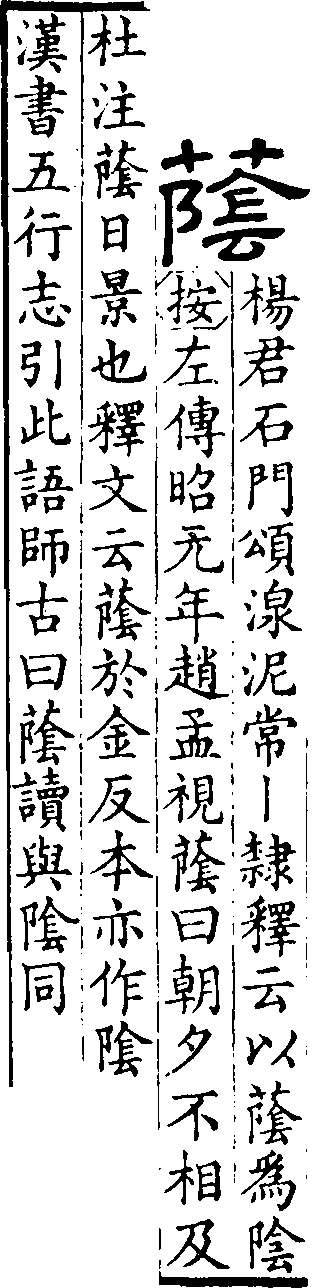 䕃
楊君石門頌湶泥常丨隸釋云以䕃爲陰
按左傳昭元年趙孟視䕃曰朝夕不相及
杜注䕃日景也釋文云䕃於金反本亦作隂
漢書五行志引此語師古曰䕃讀與隂同